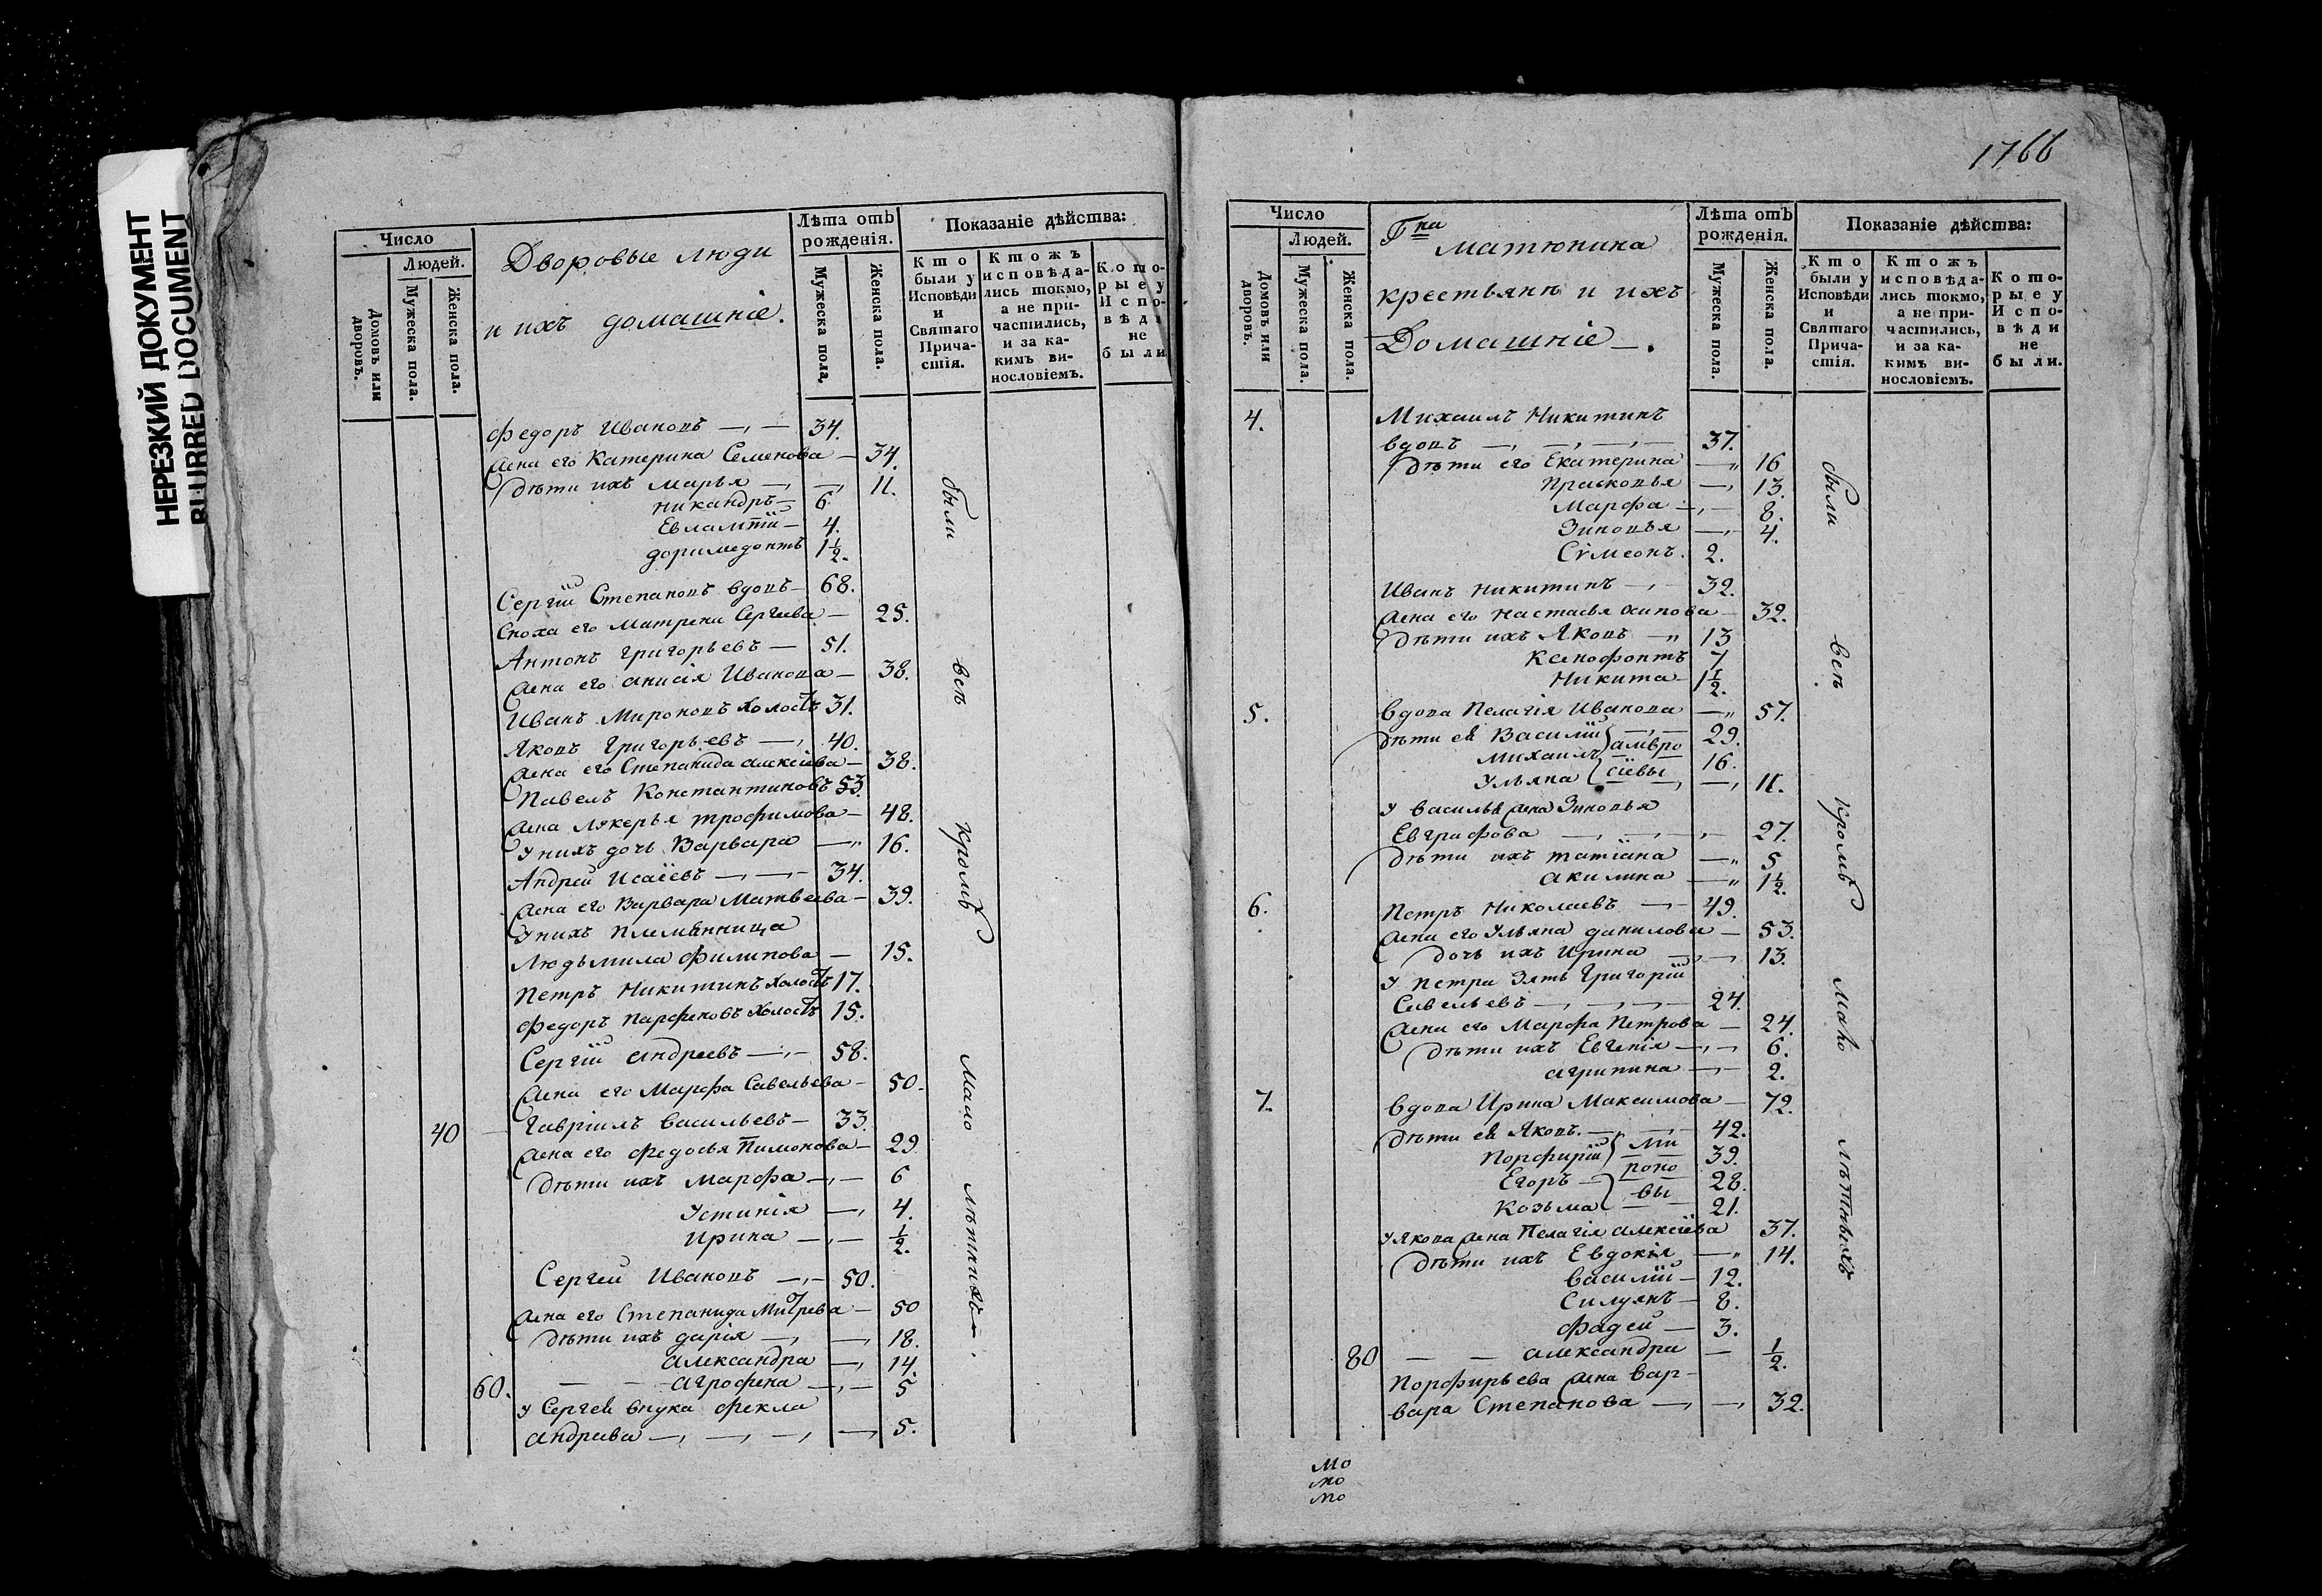 НЕРЕЗКИЙ ДОКУМЕНТ
BLURRED DOCUMENT
Число
Людей.
Домовъ или дворовъ.
Мужеска пола.
Женска пола.
Дворовые люди
и ихъ домашніе.
Лѣта отъ рожденія.
Мужеска пола.
Женска пола.
Показаніе дѣйства:
Кто были у Исповѣди и Святаго Причастія.
Ктожъ исповѣдались токмо, а не причастились, и за какимъ винословіемъ.
Которые у Исповѣди не были
Федоръ Ивановъ 34.
Жена его Катерина Семенова 34.
Дѣти ихъ Марья 11.
Никандръ 6
Евлампій 4.
Доримедонтъ 1 1/2.
Сергій Степановъ вдовъ 68.
Сноха его Матрена Сергеева 25.
Антонъ Григорьевъ 51.
Жена его Анисія Иванова 38.
Иванъ Мироновъ холостъ 31.
Яковъ Григорьевъ 40.
Жена его Степанида Алексіева 38.
Павелъ Константиновъ 53.
Жена Лукерья Трофимова 48.
У нихъ дочь Варвара 16.
Андрей Исаіевъ 34.
Жена его Варвара Матвеева 39.
У нихъ племянница
Людьмила Филипова 15.
Петръ Никитинъ холостъ 17.
Федоръ Парфеновъ холостъ 15.
Сергій Андреевъ 58.
Жена его Марфа Савельева 50.
40 Гавріилъ Васильевъ 33.
Жена его Федосья Пимонова 29
Дѣти ихъ Марфа 6
Устинія 4.
Ирина 1/2.
Сергей Ивановъ 50.
Жена его Степанида Митрева 50
Дѣти ихъ Дарія 18.
Александра 14.
60. Агрофена 5
У Сергея внука Фекла
Андреева 5.
были всѣ кромѣ мало лѣтнихъ.
1766
Число
Людей.
Домовъ или дворовъ.
Мужеска пола.
Женска пола.
Гна Матюнина
крестьянъ и ихъ
Домашніе.
Лѣта отъ рожденія.
Мужеска пола.
Женска пола.
Показаніе дѣйства:
Кто были у Исповѣди и Святаго Причастія.
Ктожъ исповѣдались токмо, а не причастились, и за какимъ винословіемъ.
Которые у Исповѣди не были.
4. Михаилъ Никитинъ
вдовъ 37.
Дѣти его Екатерина 16
Прасковья 13.
Марфа 8.
Зиновья 4.
Сѵмеонъ. 2.
Иванъ Никитинъ 32.
Жена его Настасья Осипова 32.
Дѣти ихъ Яковъ 13
Ксенофонтъ 7
Никита 1 1/2.
5. Вдова Пелагія Иванова 57.
Дѣти ея Василій 29.
Михаилъ амвро 16.
Ульяна сіевы 11.
У Василья жена Зиновья
Евграфова 27.
Дѣти ихъ Татіана 5
Акилина 1 1/2.
6. Петръ Николаевъ 49.
Жена его Ульяна Данилова 53.
Дочь ихъ Ирина 13.
У Петра зять Григорій
Савельевъ 24.
Жена его Марфа Петрова 24.
Дѣти ихъ Евгенія 6.
Агрипина 2.
7. Вдова Ирина Максимова 72.
Дѣти ея Яковъ. 42.
Порфирій ми 39.
Егоръ роно 28.
Козьма вы 21.
У Якова жена Пелагія Алексіева 37.
Дѣти ихъ Евдокія 14.
Василій 12.
Силуянъ 8.
Фадей 3.
80 Александра 1/2.
Порфирьева жена Вар-
вара Степанова 32.
были всѣ кромѣ мало лѣтныхъ